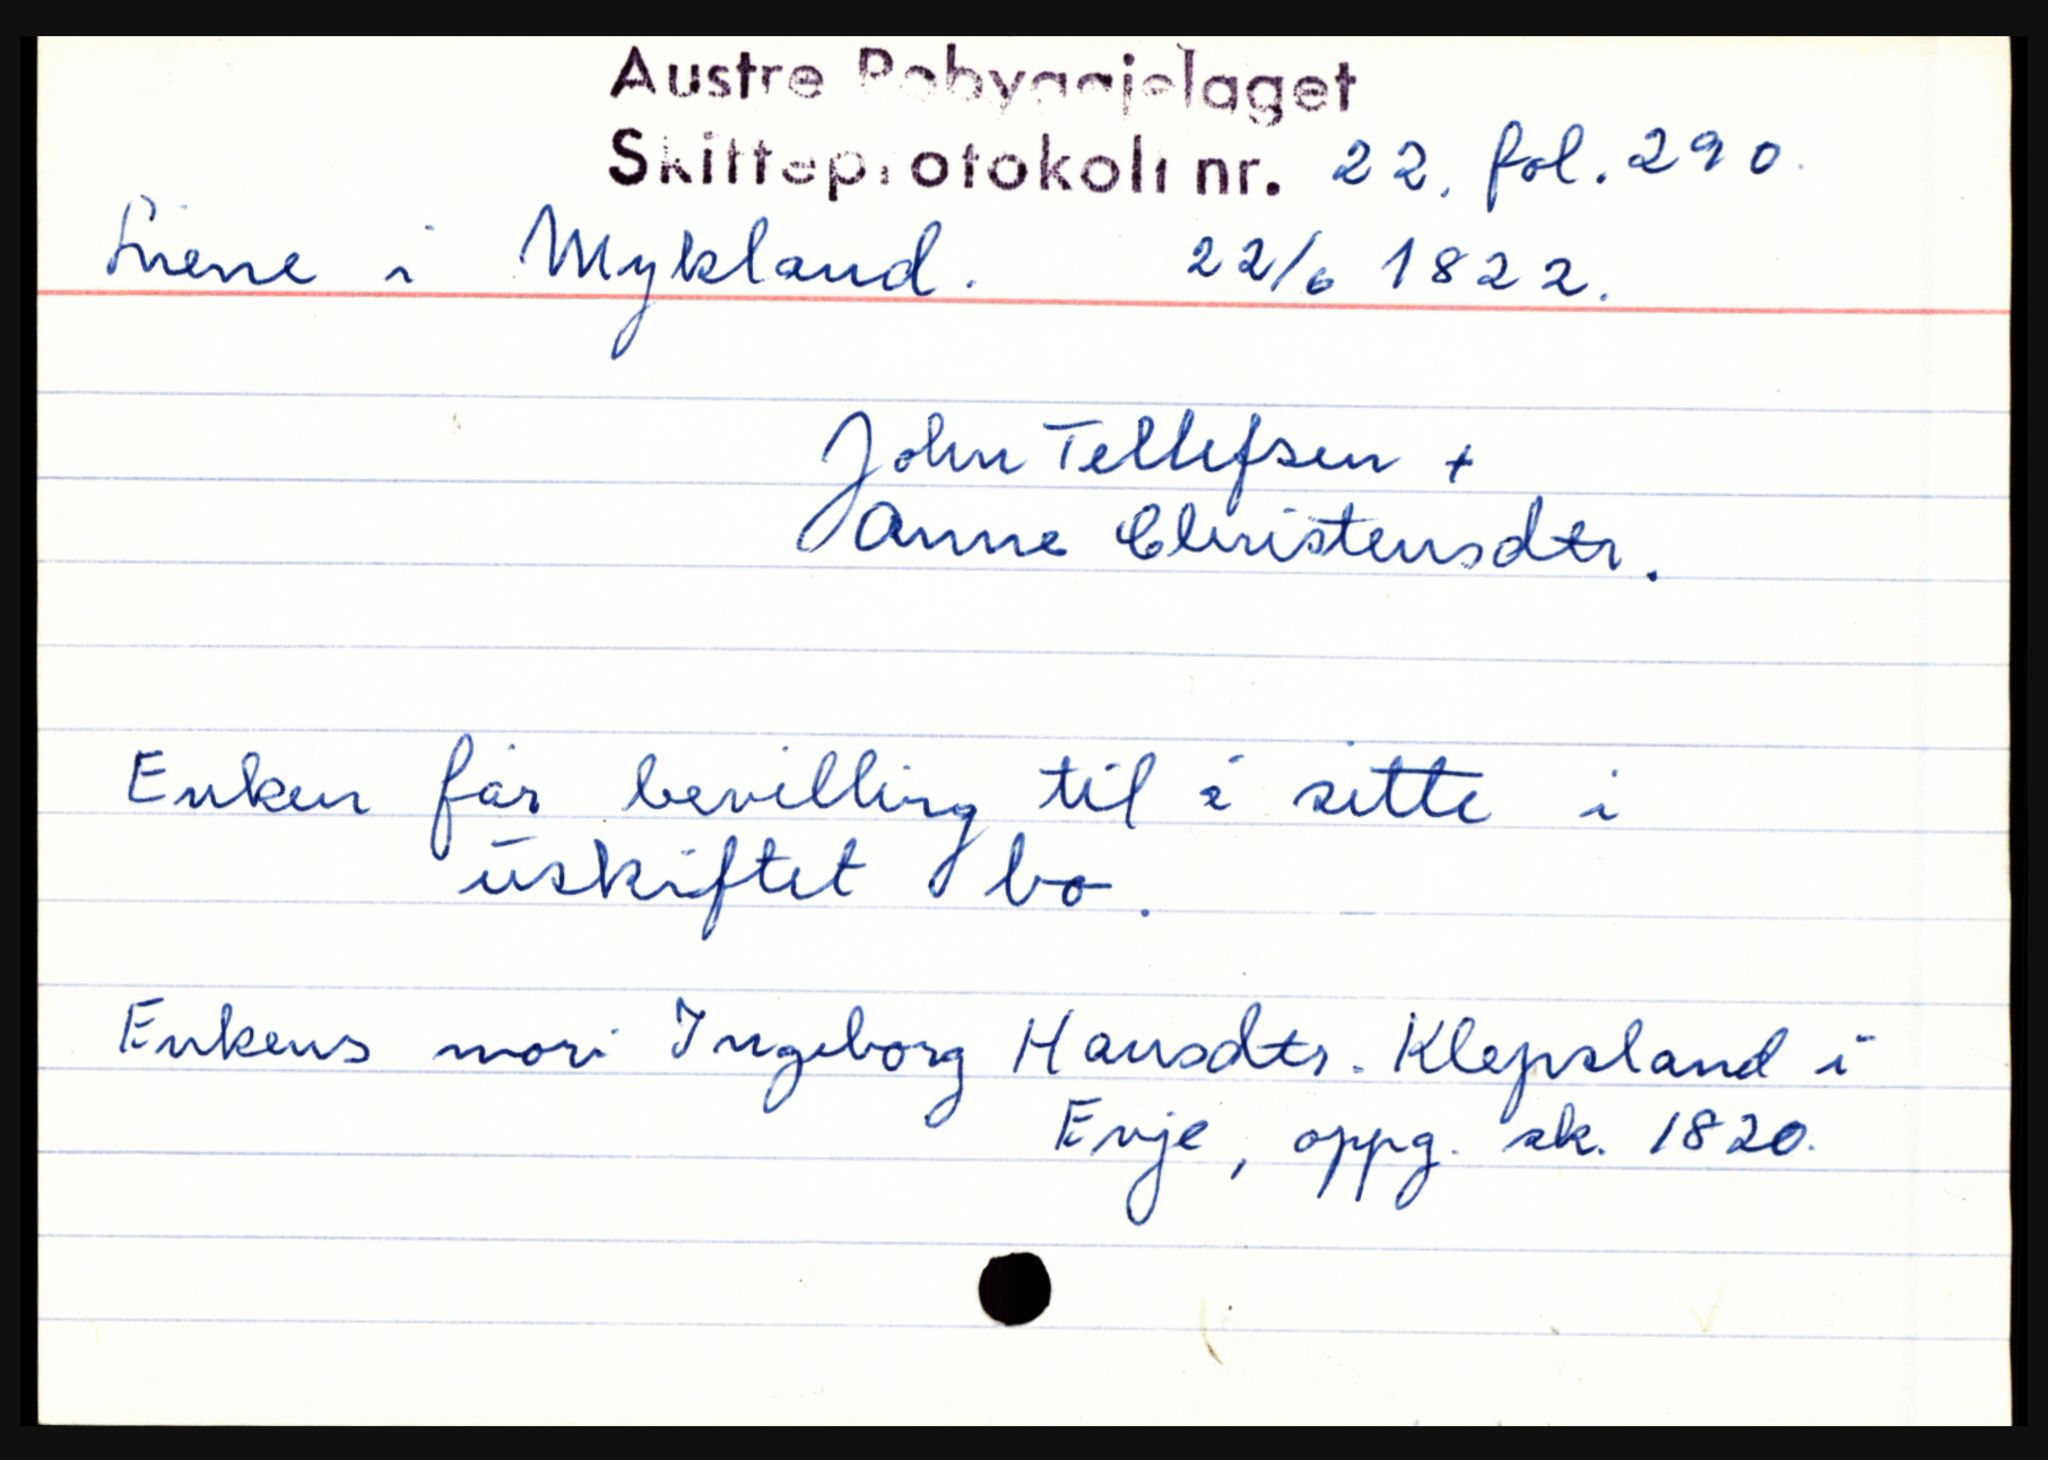 Austre Robyggjelaget
Skifteprotokoll nr. 22. fol. 290.
Liene i Mykland. 22/6 1822.
John Tellefsen +
Anne Christensdtr.
Enken får bevilling til å sitte i
uskiftet bo.
Enkens mor: Ingeborg Hansdtr. Klepsland i
Evje, oppg. sk. 1820.